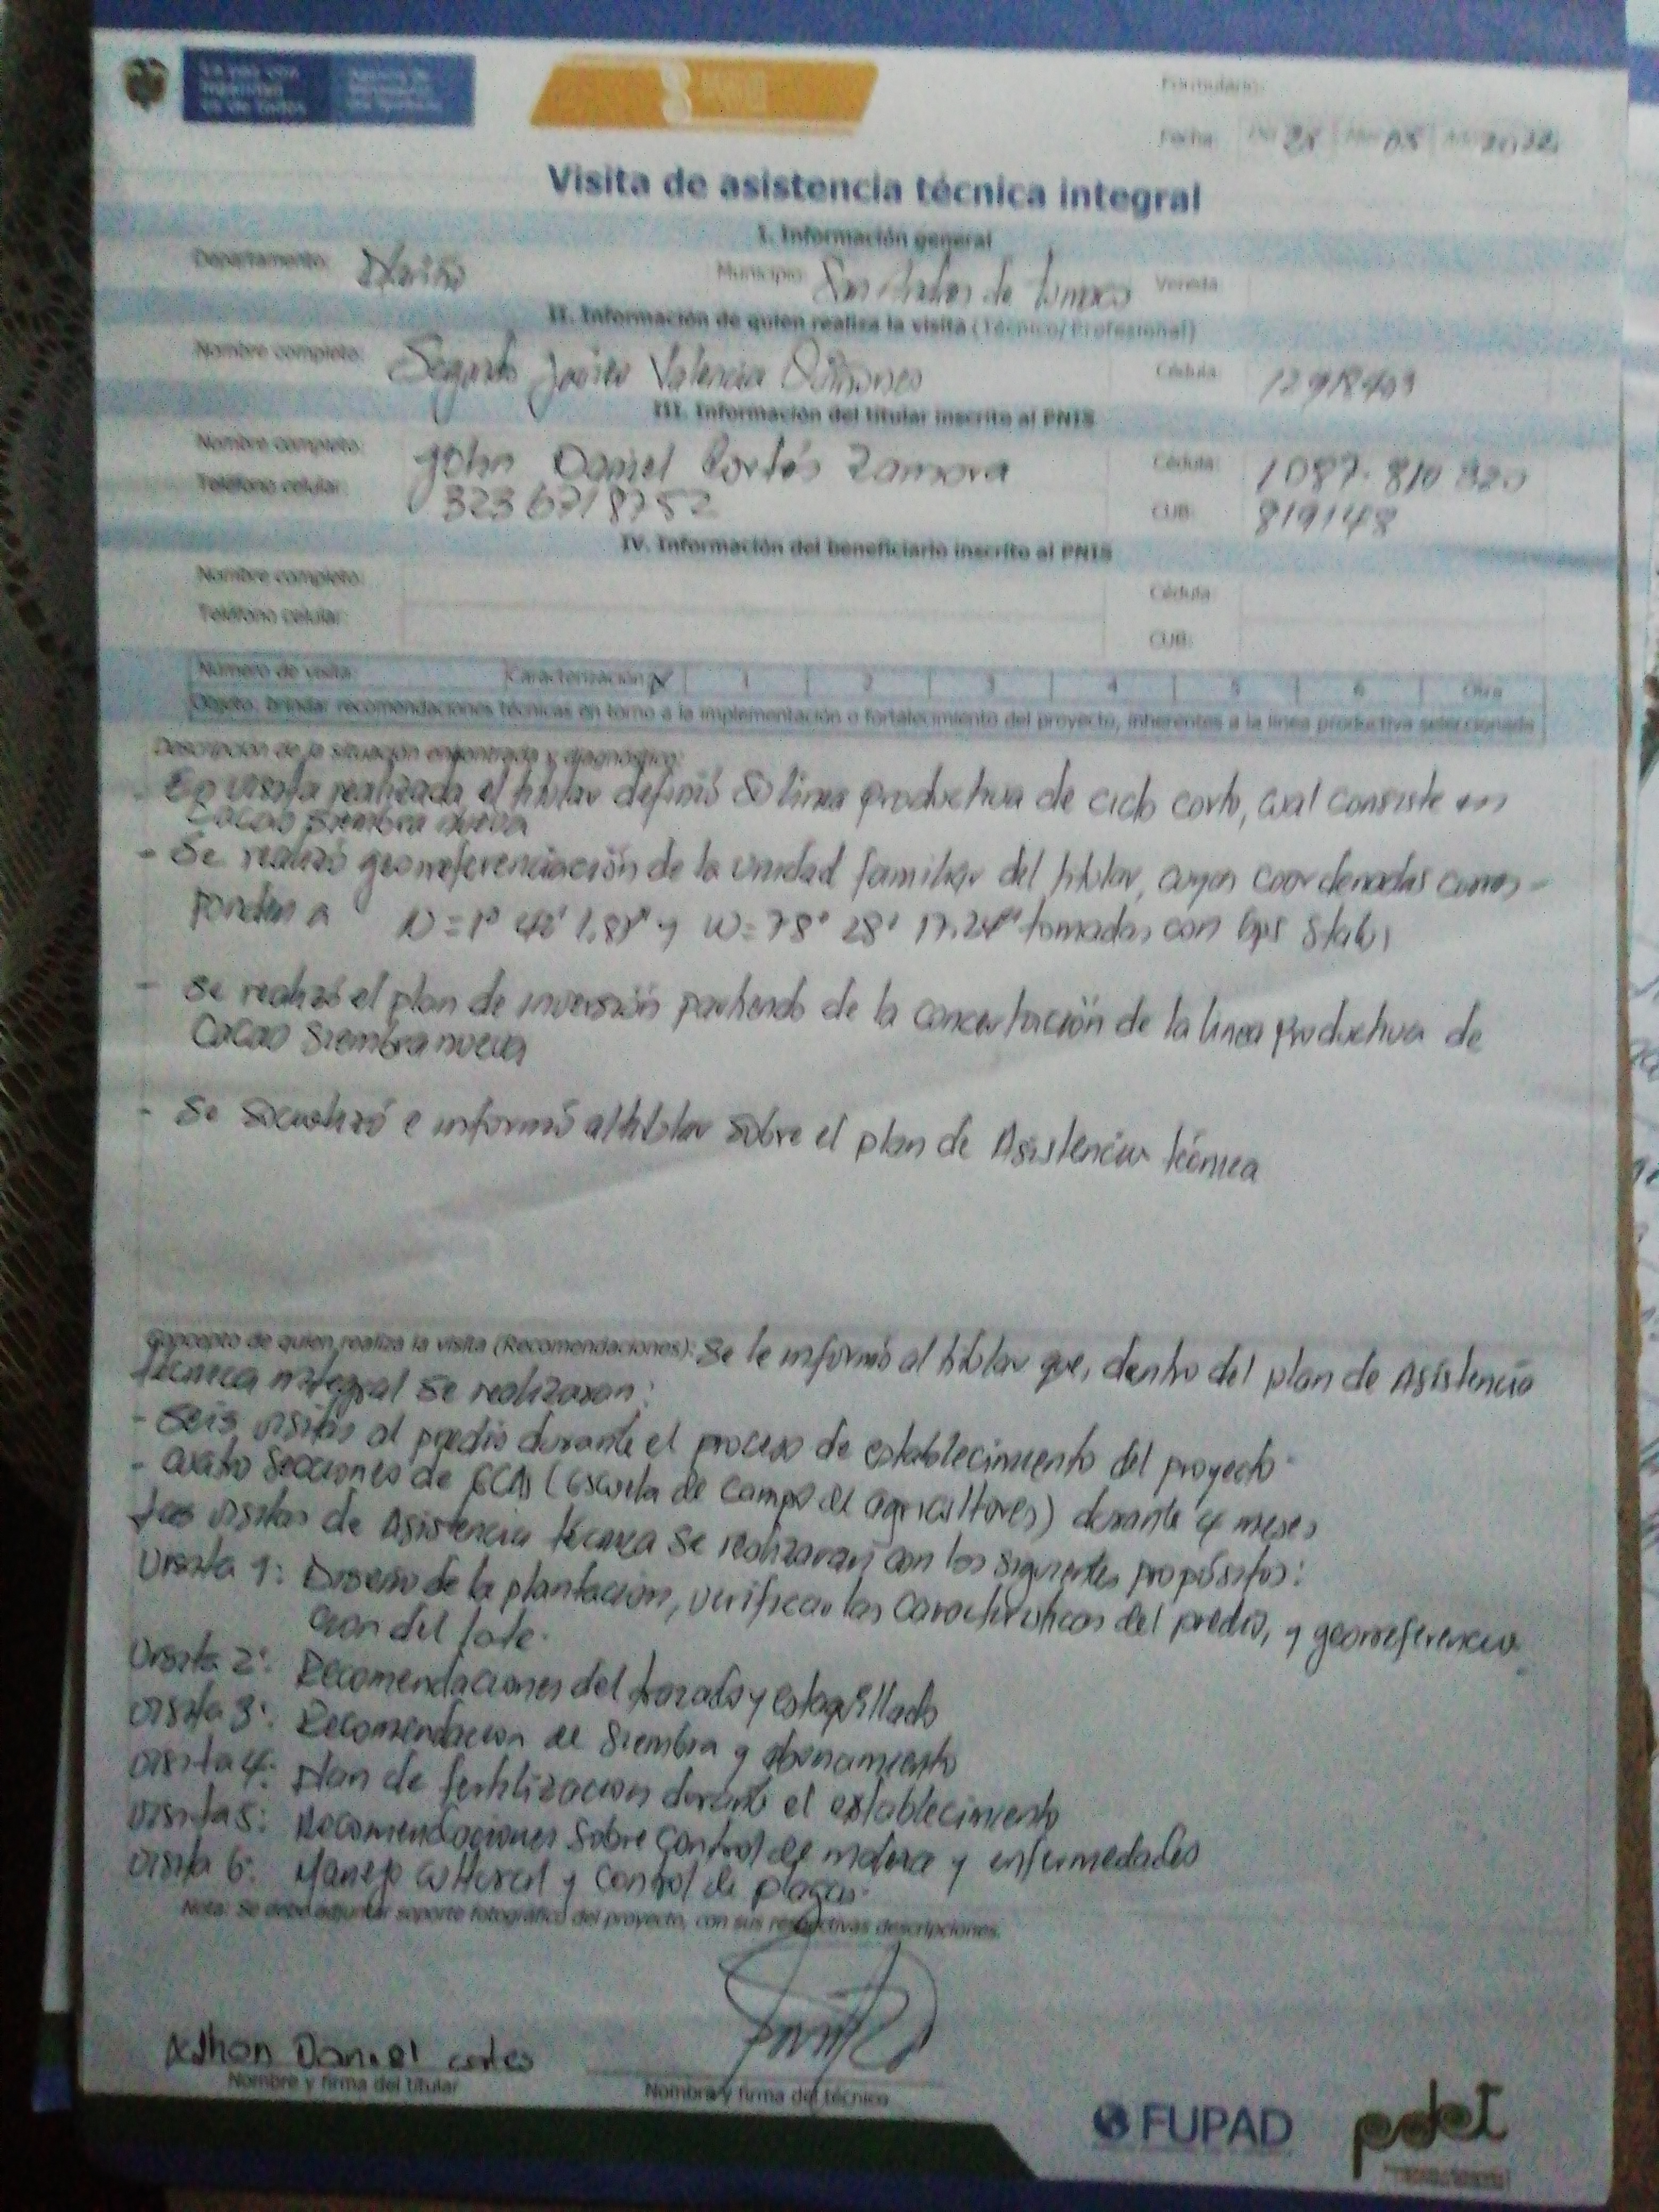 La paz con
legalidad
es de todos
Formulario:
Fecha: 05 2022
Visita de asistencia técnica integral
I. Información general
Departamento: Nariño Municipio: San Andres de Tumaco Vereda
II. Información de quien realiza la visita (Técnico/Profesional)
Nombre completo: Segundo Javier Valencia Quiñones Cédula:
III. Información del titular inscrito al PNIS
Nombre completo: John Daniel Cortés Zamora Cédula: 1087.810 820
Teléfono celular: 3236718752 CUB: 819148
IV. Información del beneficiario inscrito al PNIS
Nombre completo: Cédula:
Teléfono celular: CUB:
Número de visita: Caracterización X 1 2 3 4 5 6 Otra
Objeto: brindar recomendaciones técnicas en torno a la implementación o fortalecimiento del proyecto, inherentes a la línea productiva seleccionada
Descripción de la situación encontrada y diagnóstico:
- En visita realizada el titular definió su linea productiva de ciclo corto, cual consiste en
Cacao siembra nueva
- Se realizó georreferenciación de la unidad familiar del titular, cuyas coordenadas corres-
ponden a N=1° y W=78° 28' 17.24" tomadas con Gps
- Se realizó el plan de inversión partiendo de la concertación de la linea productiva de
Cacao Siembra nueva
- Se socializó e informó al titular sobre el plan de Asistencia técnica
Concepto de quien realiza la visita (Recomendaciones): Se le informó al titular que, dentro del plan de Asistencia
técnica integral se realizaran:
- Seis visitas al predio durante el proceso de establecimiento del proyecto.
- cuatro secciones de ECAs (escuela de campo de agricultores) durante 4 meses
Las visitas de Asistencia técnica se realizaran con los siguientes propósitos:
Visita 1: Diseño de la plantacion, verificar las Características del predio, y georreferencia
cion del lote.
Visita 2: Recomendaciones del trazado y estaquillado
Visita 3: Recomendacion de siembra y abonamiento
Visita 4: plan de fertilizacion durante el establecimiento
Visita 5: Recomendaciones sobre control de maleza y enfermedades
Visita 6: Manejo cultural y control de plagas.
Nota: Se debe adjuntar soporte fotográfico del proyecto, con sus respectivas descripciones.
Jhon Daniel cortes
Nombre y firma del titular Nombre y firma del técnico
FUPAD pdet